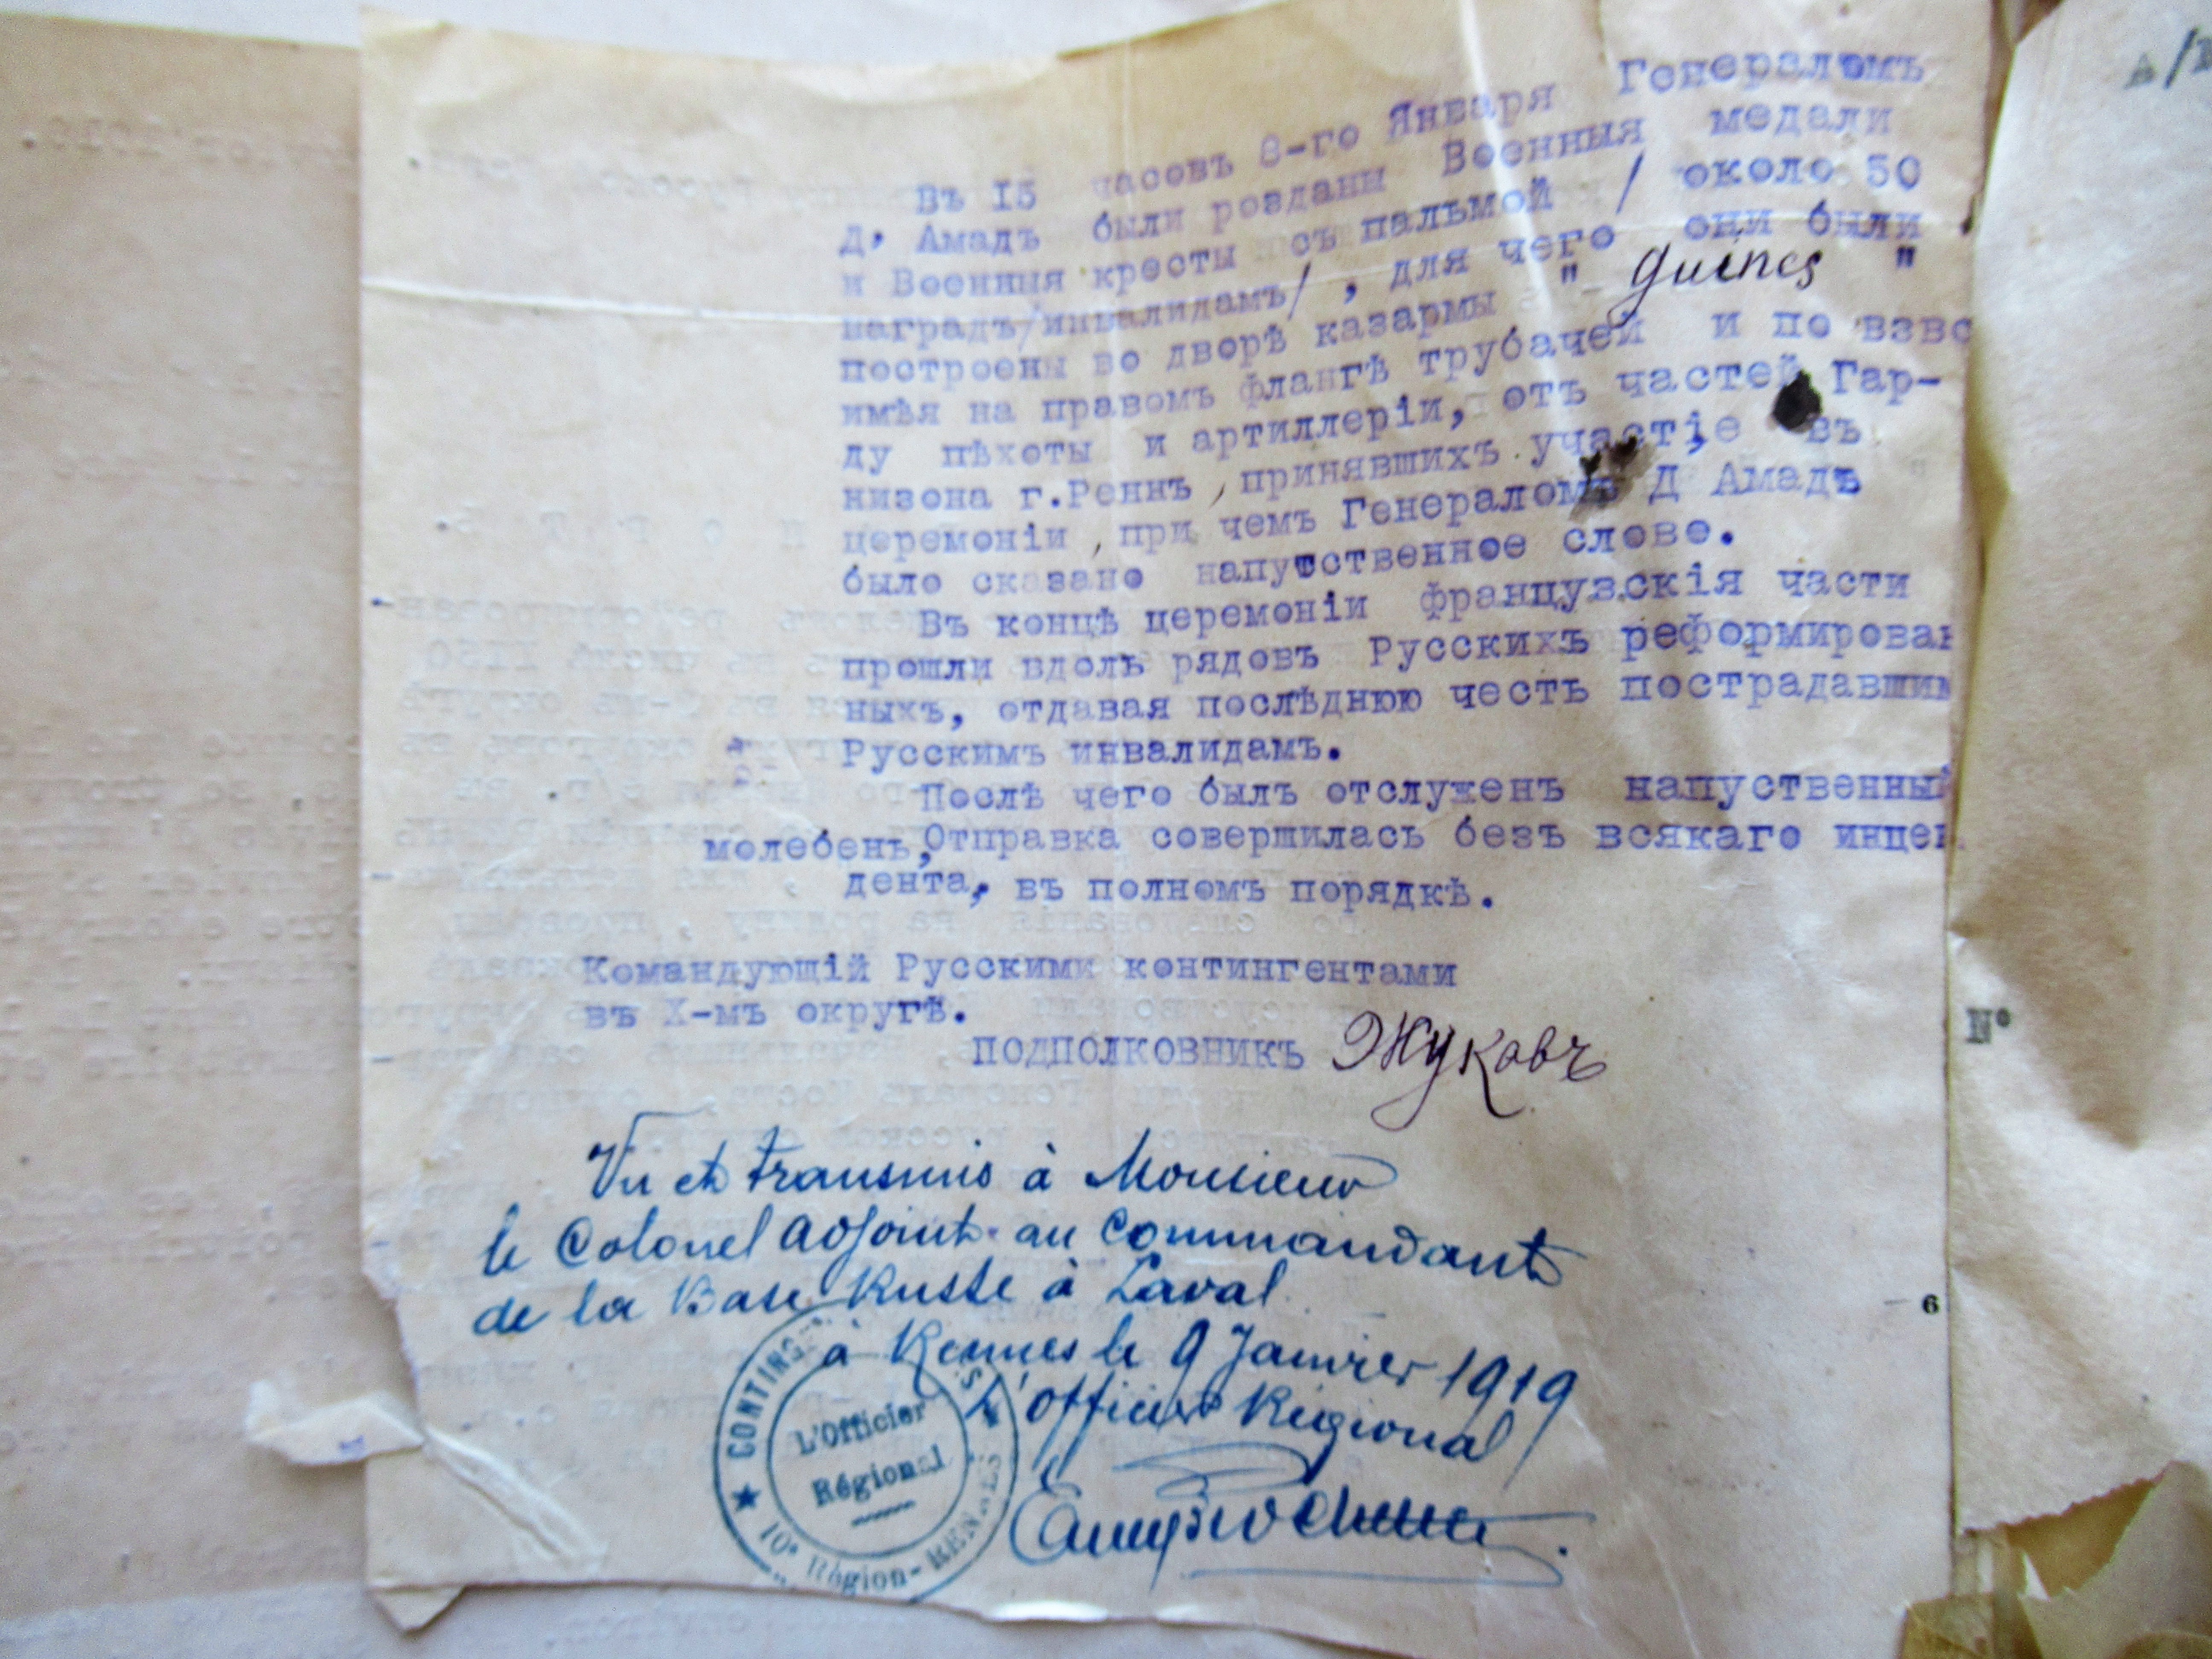 Въ 15 часовъ 8-го Января Генераломъ
Д, Амадъ были розданы Военныя медали
и Военныя кресты съ пальмой / около 50
наградъ/инвалидамъ/ , для чего они были
построены во дворѣ казармы " Guines "
имѣя на правомъ флангѣ трубачей и по взво
ду пѣхоты и артиллеріи, отъ частей Гар-
низона г.Реннъ , принявшихъ участіе въ
церемоніи , при чемъ Генераломъ Д Амадъ
было сказано напутственное слово.
Въ концѣ церемоніи французскія части
прошли вдоль рядовъ Русскихъ реформирован
ныхъ, отдавая послѣднюю честь пострадавшим
Русскимъ инвалидамъ.
Послѣ чего былъ отслуженъ напуственный
молебенъ, Отправка совершилась безъ всякаго инцен
дента, въ полномъ порядкѣ.
Командующій Русскими контингентами
въ X-мъ округѣ.
ПОДПОЛКОВНИКЪ Жуковъ
Vu et transmis à Monsieur
le Colonel adjoint au Commandant
de la Base Russe à Laval
à Rennes le 9 Janvier 1919
L'officier Régional
CONTING
L'Officier
Régional
10e Région - RENNES
A/
N°
6